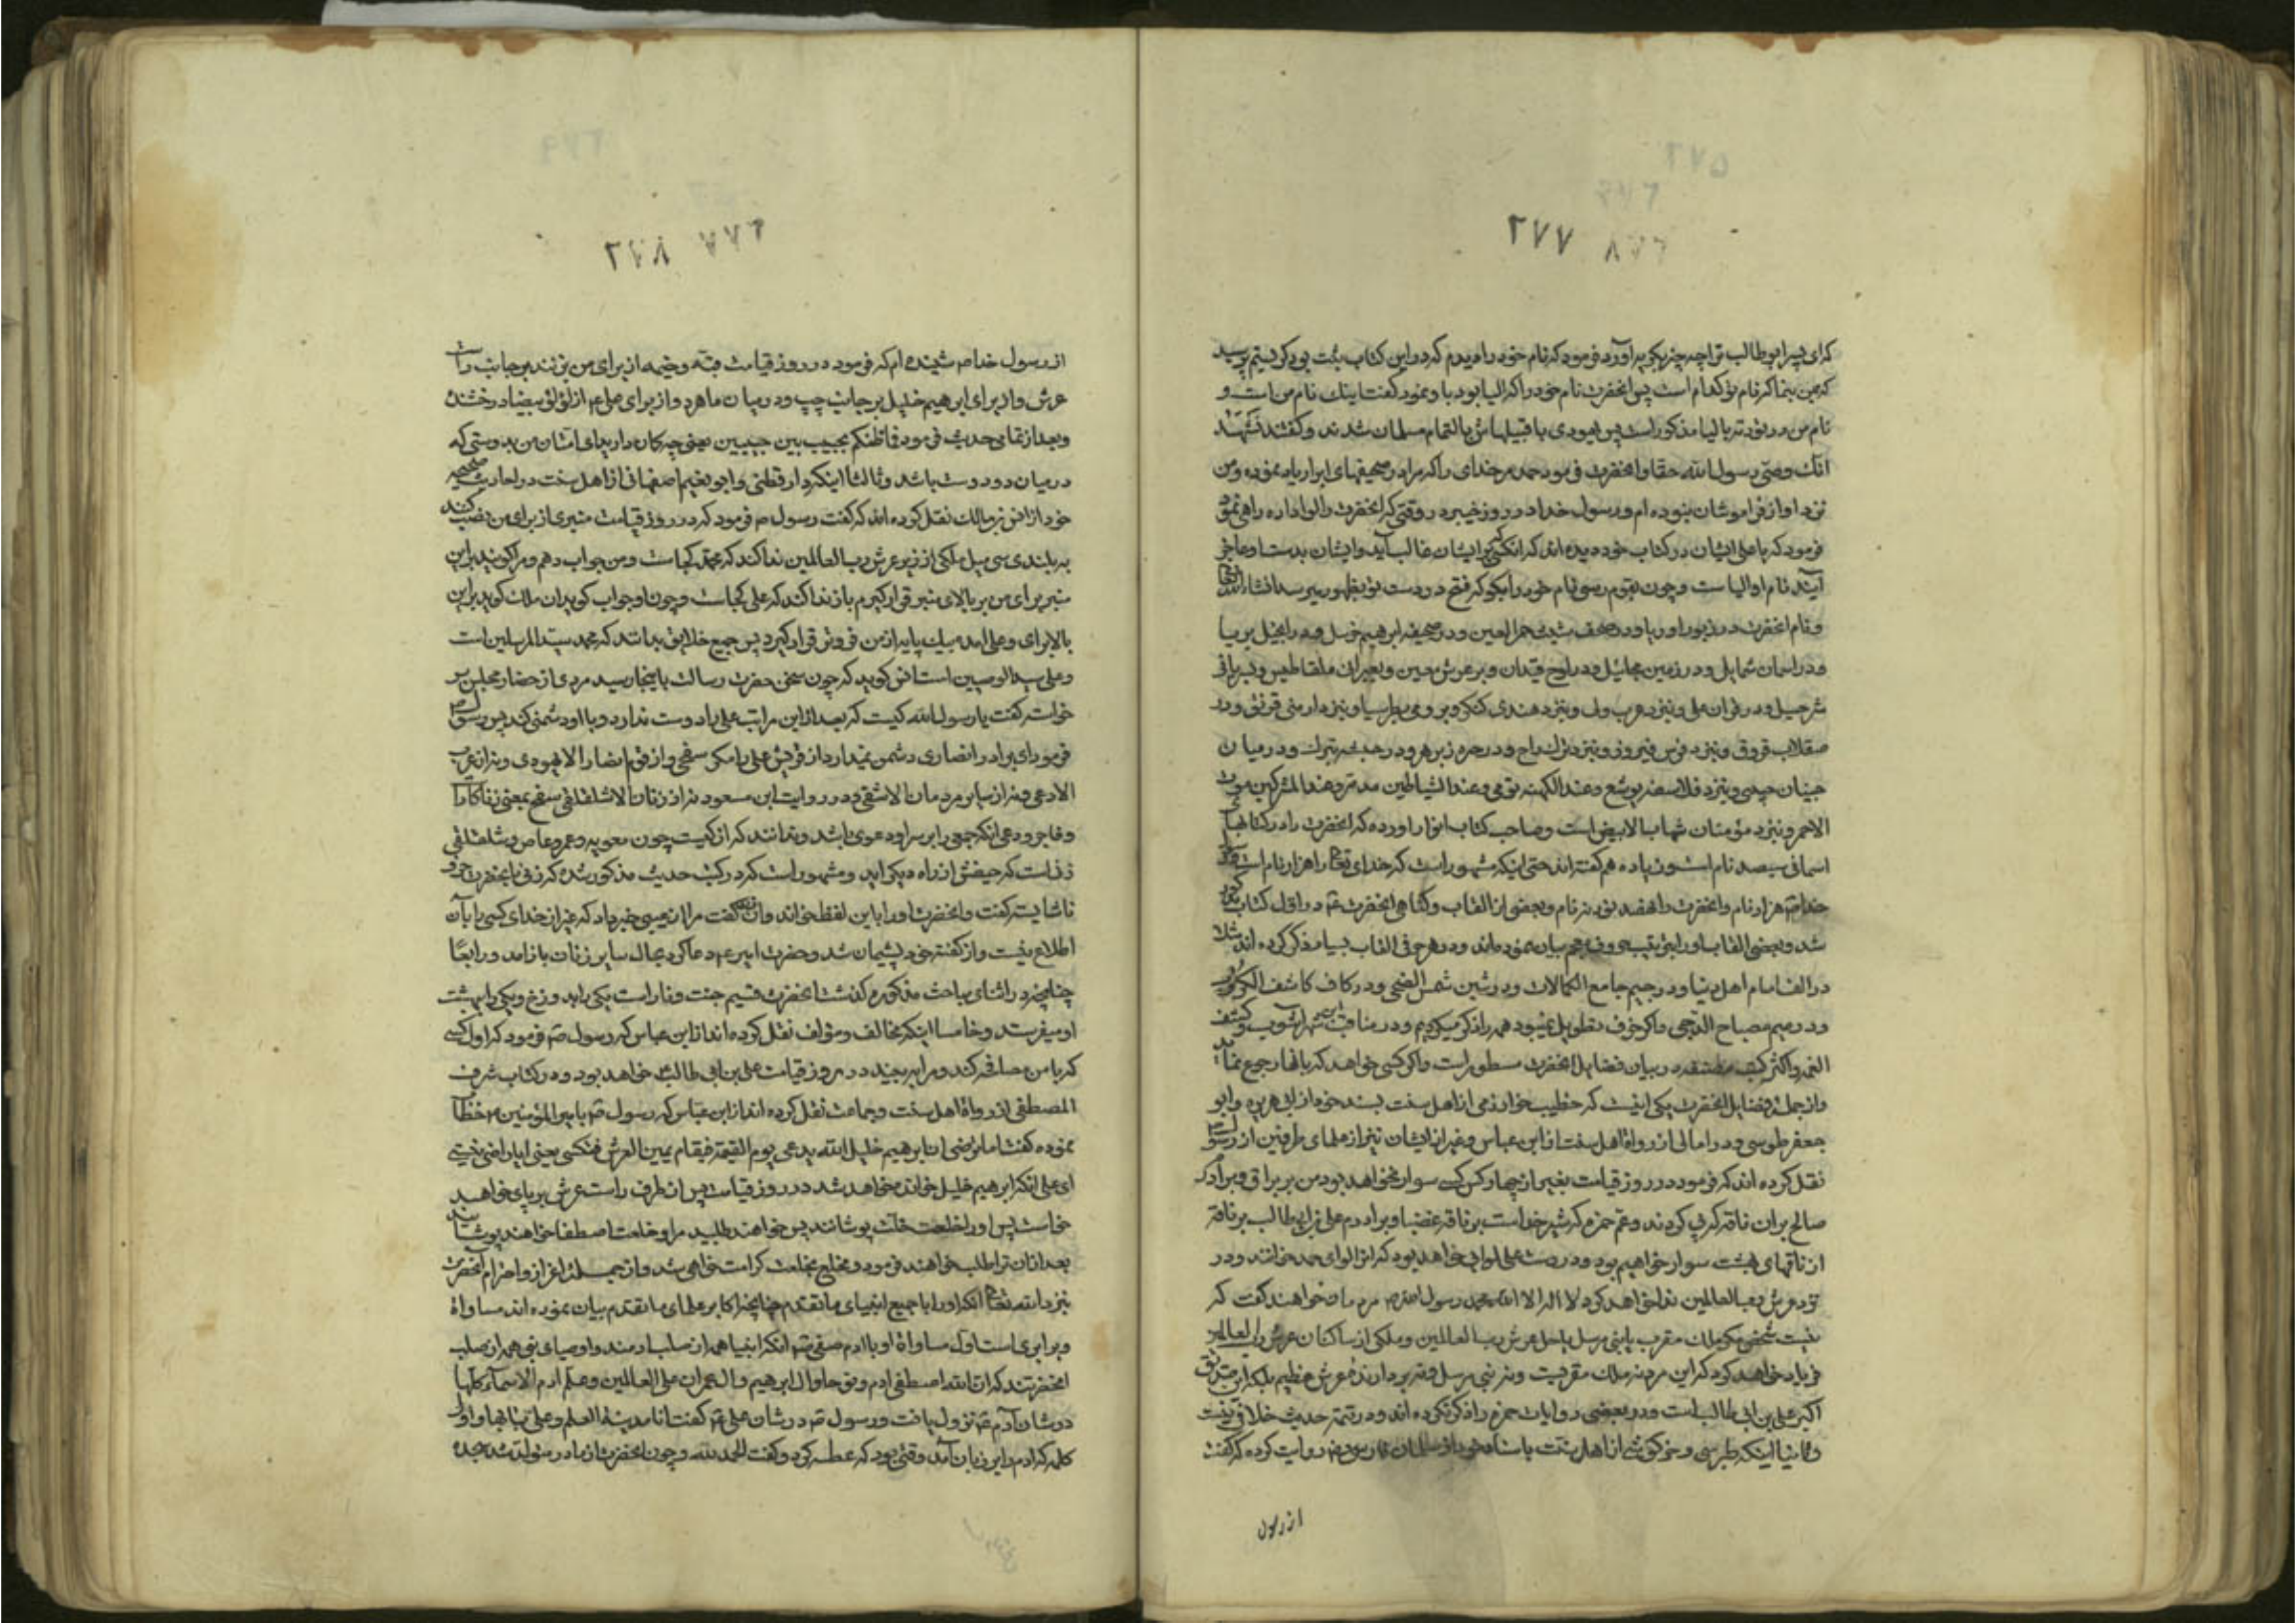 ۲۷۷
کرای پسر ابوطالب ترا چه چیز بگریه آورد فرمود که نام خود را دیدم که در این کتاب ثبت بود گریستم پرسید
که بمن بنما که نام تو کدام است پس انحضرت نام خود را که الیا بود باو نمود و گفت اینک نام من است و
نام من در توریه بالیا مذکور است پس یهودی با قبیله اش بالتمام مسلمان شدند و گفتند نشهد
انک وصی رسول الله حقا و انحضرت فرمود حمد مر خدای را که مرا در صحیفهای ابرار یاد نموده و من
نزد او از فراموشان نبوده ام و رسول خدا در روز خیبر در وقتی که انحضرت را لوا داده راهی نمود
فرمود که یا علی ایشان در کتاب خود دیده اند که انکسی که بر ایشان غالب آید و ایشان بدست او عاجز
آیند نام او الیاست و چون بقوم رسی نام خود را بگو که فتح در دست تو بظهور میرسد انشاء الله تعالی
و نام انحضرت در زبور اوریا و در صحف شیث حمر العین و در صحیفه ابرهیم خربیل و در انجیل بریا
و در اسمان شمایل و در زمین جمائیل و در لوح قیدان و بر عرش معین و
شرحیل و در قران علی و نزد عرب ولی و نزد هندی کنکر و بر رومی بطرسیا و نزد ارمنی فریق و در
صقلاب فروق و نزد فرس فیروز و نزد ترک راج و در حبشه تبرک و در میان
جنیان حیص و نزد فلاسفه یوشع و عند الکهنه بوی و عند الشیاطین مدمر و عند المشرکین موت
الاحمر و نزد مؤمنان شهاب الابیض است و صاحب کتاب انوار آورده که انحضرت را در کتابهای
اسمانی سیصد نام است و زیاده هم گفته اند حتی اینکه مشهور است که خدای تعالی را هزار نام است
خدا هزار نام و انحضرت را هفصد نود نه نام و بعضی از القاب و کنای انحضرت در اول کتاب
شد و بعضی القاب او را بترتیب حروف معجم بیان نموده اند و در هر حرفی القاب بسیار ذکر کرده اند مثلا
در الف امام اهل دنیا و در جیم جامع الکمالات و در شین شمس الضحی و در کاف کاشف الکروب
و در میم مصباح الدجی و اگر خوف تطویل نمیبود همه را ذکر میکردم و در مناقب ابن شهر اشوب و کشف
الغمه و اکثر کتب در بیان فضایل انحضرت مسطور است و اگر کسی خواهد که بانها رجوع نماید
و از جمله فضایل انحضرت یکی اینست که خطیب خوارزمی از اهل سنت بسند خود از ابی هریره و ابو
جعفر طوسی و در امالی از رواة اهل سنت از ابن عباس و غیر از ایشان نیز از علمای طرفین از رسول
نقل کرده اند که فرمود در روز قیامت بغیر از چهار کس کسی سوار نخواهد بود من بر براق و برادرم
صالح بر ان ناقه که پی کردند و عم حمزه که شیر خداست بر ناقه غضبا و برادرم علی بن ابی طالب بر ناقه
از ناقهای بهشت سوار خواهیم بود و در دست علی لوایی خواهد بود که انرا لوای حمد خوانند و در
نزد عرش رب العالمین ندا خواهد کرد لا اله الا الله محمد رسول الله مردمان خواهند گفت که
نیست شخص مگر ملک مقرب یا نبی مرسل یا حامل عرش رب العالمین و ملکی از ساکنان عرش رب العالمین
فریاد خواهد کرد که این مرد نه ملک مقربست و نه نبی مرسل و نه بردارنده عرش عظیم بلکه این صدیق
اکبر علی بن ابی طالب است و در بعضی روایات حمزه را ذکر نکرده اند و در تتمه حدیث خلافی نیست
و ثانیا اینکه طبرسی و خرکوشی از اهل سنت باسناد خود از سلمان فارسی روایت کرده که گفت
از رسول
۲۷۸
از رسول خدا شنیده ام که فرمود در روز قیامت قبه و خیمه از برای من بزنند بر جانب راست
عرش و از برای ابرهیم خلیل بر جانب چپ و در میان ما هر دو از برای علی از لؤلؤ بیضا درخشنده
و بعد از تمامی حدیث فرمود فما ظنکم بحبیب بین حبیبین یعنی چه گمان دارید ای امتان من بدوستی که
در میان دو دوست باشد و ثالثا اینکه دار قطنی و ابو نعیم اصفهانی از اهل سنت در احادیث صحیحه
خود از انس بن مالک نقل کرده اند که گفت رسول فرمود که در روز قیامت منبری از برای من نصب کنند
به بلندی سی میل ملکی از زیر عرش رب العالمین ندا کند که محمد کجاست و من جواب دهم و مرا گویند بر این
منبر برای من بر بالای منبر قرار گیرم باز ندا کند که علی کجاست و چون او جواب گوید ان ملک گوید بر این
بالا برای و علی امده بیک پایه از من فروتر قرار گیرد پس جمیع خلایق بدانند که محمد سید المرسلین است
و علی سید الوصیین است انس گوید که چون سخن حضرت رسالت باینجا رسید مردی از حضار مجلس بر
خواسته گفت یا رسول الله کیست که بعد از این مراتب علی را دوست ندارد و با او دشمنی کند پس رسول
فرمود ای برادر انصاری دشمن نمیدارد از قریش علی را مگر سفحی و از قوم انصار الا یهودی و نه از عرب
الا دعی و نه از سایر مردمان الا شقی و در روایت ابن مسعود نه از زنان الا سلقلقی سفح بمعنی زناکار
و فاجر و دعی انکه جمعی را بر سر او دعوی باشد و ندانند که از کیست چون معویه و عمرو عاص و سلقلقی
زنیست که حیضش از راه دیگر اید و مشهور است که در کتب حدیث مذکور شده که زنی بانحضرت حرف
ناشایسته گفت و انحضرت او را باین لفظ خواند و ان زن گفت مرا از عیبی خبر داد که غیر از خدای کسی را بآن
اطلاع نیست و از گفته خود پشیمان شد و حضرت امیر دعا کرد بحال سایر زنان باز امد و رابعا
چنانچه در اثنای مباحث مذکوره گذشت انحضرت قسیم جنت و نار است یکی را بدوزخ و یکی را بهشت
او میفرستد و خامسا اینکه مخالف و مؤلف نقل کرده اند از ابن عباس که رسول فرمود که اول کسی
که با من مصافحه کند و مرا بیند در روز قیامت علی بن ابی طالب خواهد بود و در کتاب شرف
المصطفی از رواة اهل سنت و جماعت نقل کرده اند از ابن عباس که رسول با امیر المؤمنین خطاب
نموده گفت اما ترضی ان ابرهیم خلیل الله یدعی یوم القیمة فیقام یمین العرش فتکسی یعنی ایا راضی نیستی
ای علی انکه ابرهیم خلیل خوانده خواهد شد در روز قیامت پس از طرف راست عرش بر پای خواهد
خاست پس او را خلعت خلت پوشانند پس خواهند طلبید مرا و خلعت اصطفا خواهند پوشانید
بعد از ان ترا طلب خواهند فرمود و مخلع بخلعت کرامت خواهی شد و از جمله اعزاز و احترام انحضرت
نزد الله تعالی انکه او را با جمیع انبیای ما تقدم چنانچه اکابر علمای ما تقدم بیان نموده اند مساواة
و برابری است اول مساواة او با ادم صفی انکه انبیا همه از صلب ادمند و اوصیای نبی همه از صلب
انحضرتند که ان الله اصطفی ادم و نوحا و ال ابرهیم و ال عمران علی العالمین و علم ادم الاسماء کلها
در شان آدم نزول یافت و رسول در شان علی گفت انا مدینة العلم و علی بابها و اول
کلمه که ادم را بر زبان آمد وقتی بود که عطسه کرد و گفت الحمد لله و چون انحضرت از مادر متولد شد سجده